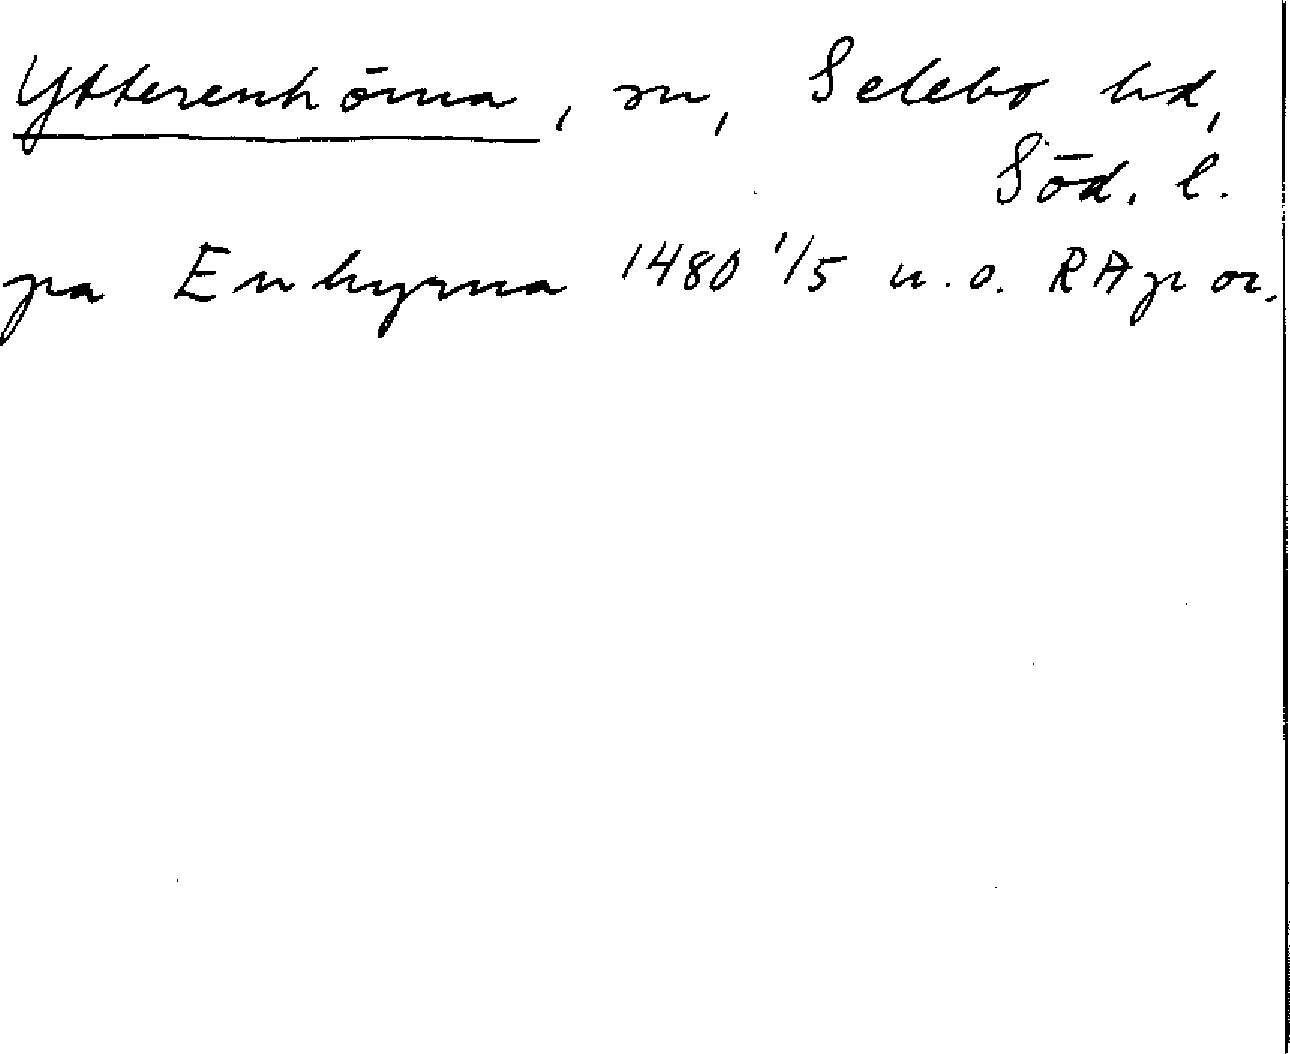 Ytterenhörna, sn, Selebo hd,
Söd. l.
pa Enhyrna 1480 1/5 u.o. RAp or.